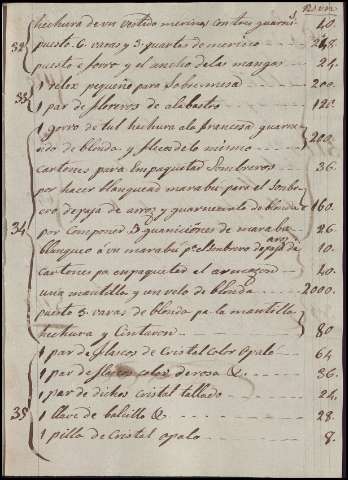 Rs. vn.
hechura de un vestido merino, con tres guarnis. 40.
32 puesto 6. varas y 3. quartas de merino 248.
puesto el forro y el ancho de las mangas 24.
33 1 relox pequeño para Sobremesa 200.
1 par de floreros de alabastro 120.
1 gorro de tul hechura a la francesa guarne
cido de blonda y fleco de lo mismo 200.
cartones para empaquetar Sombreros 36.
por hacer blanquear marabu para el Sombre
ro de paja de arroz y guarnecerlo de blonda 160.
34 por componer 3 guarniciones de marabu 26.
blanqueo á un marabu pa. el sombrero de paja de arroz 10.
cartones pa. empaquetar el 40.
una mantilla y un velo de blonda 2000.
puesto 5. varas de blonda pa. la mantilla
hechura y Cinturon 80
1 par de flascos de Cristal color Opalo 64
1 par de flascos color de rosa &. 36.
1 par de dichos cristal tallado 24.
35 1 llave de bolsillo & 28.
1 pilla de cristal opalo 8.